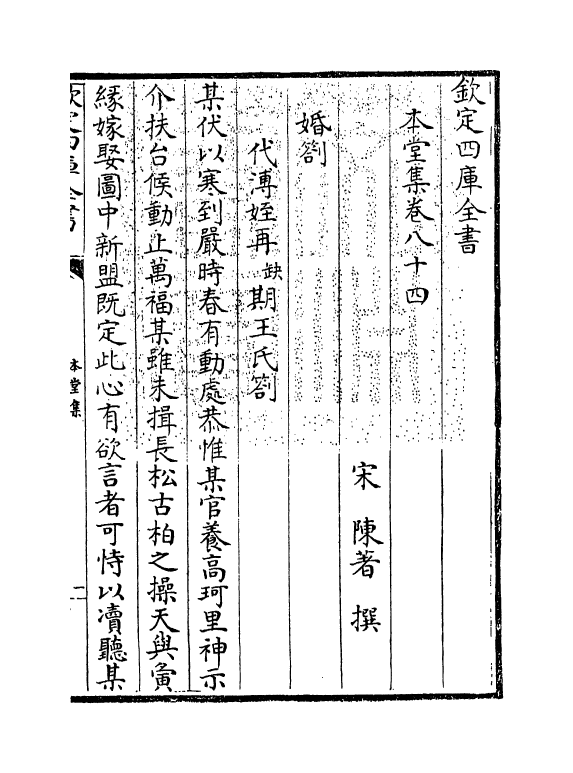 欽定四庫全書
本堂集卷八十四
宋 陳著 撰
婚劄
代溥姪再缺期王氏劄
某伏以寒到嚴時春有動處恭惟某官養高珂里神示
介扶台候動止萬福某雖未揖長松古柏之操天與夤
緣嫁娶圖中新盟既定此心有欲言者可恃以瀆聽某
欽定四庫全書
本堂集